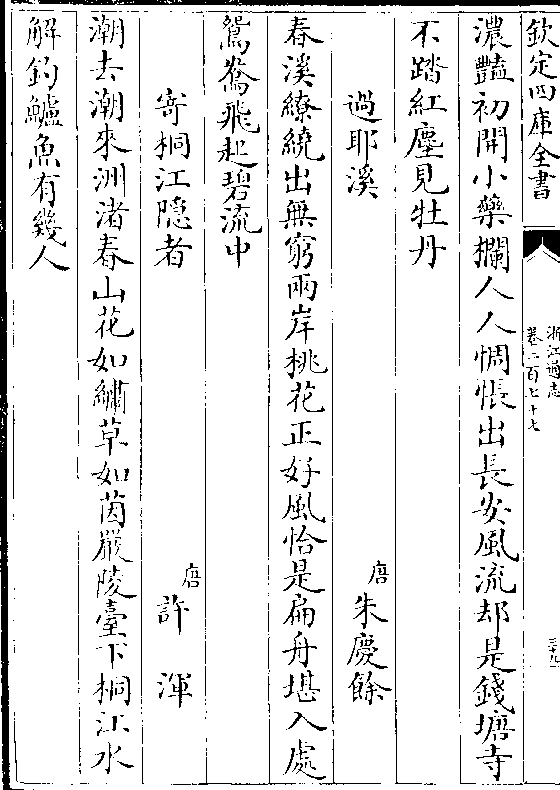 欽定四庫全書
浙江通志
卷二百七十七
三十九
濃豔初開小藥欄人人惆悵出長安風流却是錢塘寺
不踏紅塵見牡丹
過耶溪
唐 朱慶餘
春溪繚繞出無窮兩岸桃花正好風恰是扁舟堪入處
鴛鴦飛起碧流中
寄桐江隱者
唐 許渾
潮去潮來洲渚春山花如繡草如茵嚴陵臺下桐江水
解釣鱸魚有幾人